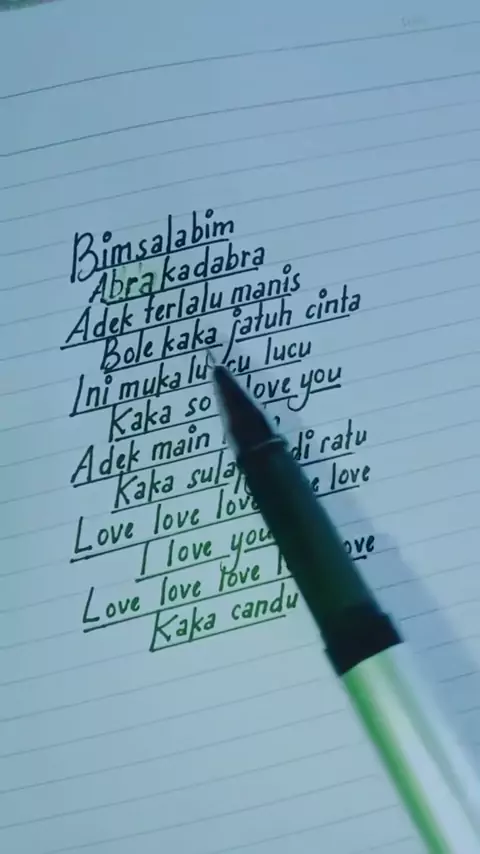 Bimsalabim
Abrakadabra
Adek terlalu manis
Bole kaka jatuh cinta
Ini muka lucu lucu
Kaka so love you
Adek main
Kaka sula di ratu
Love love love love
I love you
Love love love love
Kaka candu